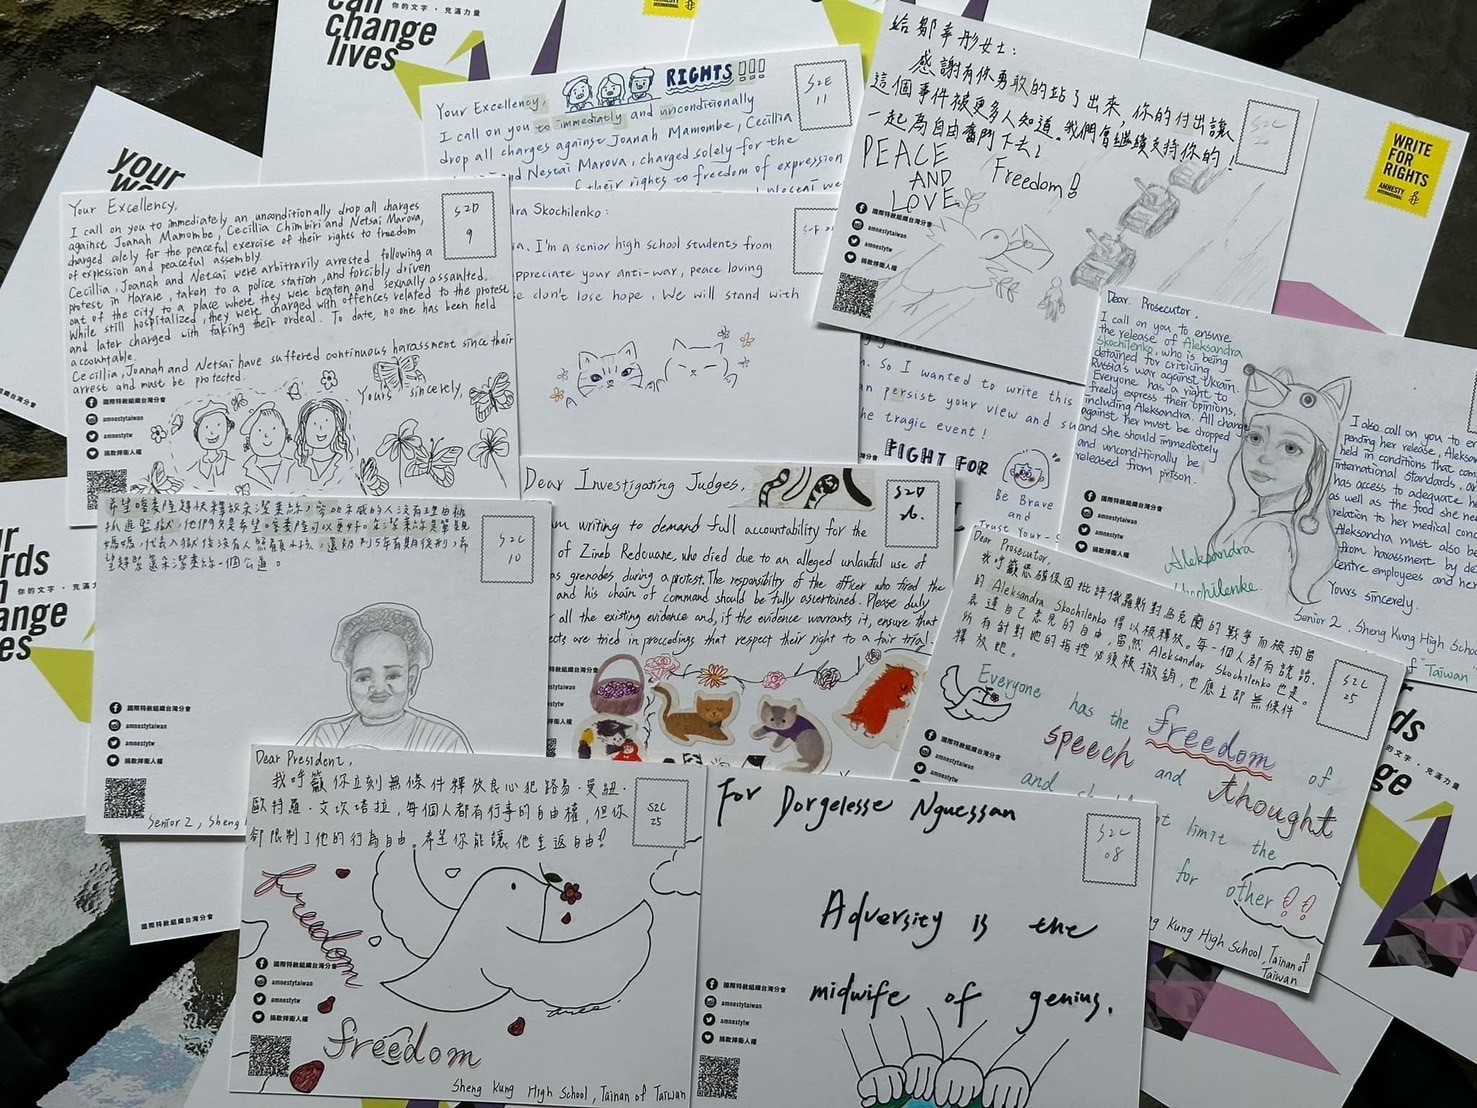 can
change
lives
你的文字・充滿力量
AMNESTY
INTERNATIONAL
your
WRITE
FOR
RIGHTS
AMNESTY
INTERNATIONAL
RIGHTS!!!
S2E
11
Your Excellency,
I call on you to immediatly and unconditionally
drop all charges against Joanah Mamombe, Cecillia
and Netsai Marova, charged solely for the
of their rights to freedom of expression
給鄒幸彤女士:
感謝有你勇敢的站了出來,你的付出讓
這個事件被更多人知道。我們會繼續支持你的!
一起為自由奮鬥下去!
PEACE
AND
LOVE
Freedom!!
國際特赦組織台灣分會
amnestytaiwan
amnestytw
捐款捍衛人權
Your Excellency,
S2D
9
I call on you to immediately an unconditionally drop all charges
against Joanah Mamombe, Cecillia Chimbiri and Netsai Marova,
charged solely for the peaceful exercise of their rights to freedom
of expression and peaceful assembly.
Cecillia, Joanah and Netsai were arbitrarily arrested following a
protest in Harare, taken to a police station, and forcibly driven
out of the city to a place where they were beaten and sexually assaulted.
While still hospitalized, they were charged with offences related to the protest
and later charged with faking their ordeal. To date, no one has been held
accountable.
Cecillia, Joanah and Netsai have suffered continuous harassment since their
arrest and must be protected.
Yours sincerely,
國際特赦組織台灣分會
amnestytaiwan
amnestytw
捐款捍衛人權
Skochilenko:
I'm a senior high school students from
appreciate your anti-war, peace loving
don't lose hope. We will stand with
So I wanted to write this
persist your view and
tragic event!
FIGHT FOR
Be Brave
and
Trust Your
Dear. Prosecutor,
I call on you to ensure
the release of Aleksandra
Skochilenko, who is being
detained for criticizing
Russia's war against Ukrain.
Everyone has a right to
freely express their opinions,
including Aleksandra. All charge
against her must be dropped
and she should immediately
and unconditionally be
released from prison.
I also call on you to
pending her release, Aleksan
held in conditions that com
international standards,
has access to adequate
as well as the food she
relation to her medical con
Aleksandra must also be
from harassment by
centre employees and
Yours sincerely.
Senior 2, Sheng Kung High
Taiwan
Aleksandra
Skochilenko.
國際特赦組織台灣分會
amnestytaiwan
amnestytw
捐款捍衛人權
S2C
10
國際特赦組織台灣分會
amnestytaiwan
amnestytw
捐款捍衛人權
Senior 2, Sheng
Dear Investigating Judges,
S2D
26
am writing to demand full accountability for the
of Zineb Redouane, who died due to an alleged unlawful use of
gas grenades, during a protest. The responsibility of the officer who fired the
and his chain of command should be fully ascertained. Please duly
all the existing evidence and, if the evidence warrants it, ensure that
are tried in proceedings that respect their right to a fair trial.
Dear Prosecutor,
我呼籲您確保因批評俄羅斯對烏克蘭的戰爭而被拘留
的 Aleksandra Skochilenko 得以被釋放。每一個人都有說話、
表達自己意見的自由,當然 Aleksandar Skochilenko 也是。
所有針對她的指控必須被撤銷,也應立即無條件
釋放她。
S2C
25
Everyone has the freedom of
speech and thought
and
limit the
for other!!
Kung High School, Tainan of
Taiwan
your
words
can
change
lives
你的文字・充滿力量
國際特赦組織台灣分會
Dear President,
我呼籲你立刻無條件釋放良心犯路易・曼紐・
歐特羅・艾坎塔拉,每個人都有行事的自由權,但你
卻限制了他的行為自由。希望你能讓他重返自由!
S2C
25
freedom
國際特赦組織台灣分會
amnestytaiwan
amnestytw
捐款捍衛人權
freedom
Sheng Kung High School, Tainan of Taiwan
For Dorgelesse Nguessan
S2C
08
Adversity is the
midwife of genius.
國際特赦組織台灣分會
amnestytaiwan
amnestytw
捐款捍衛人權